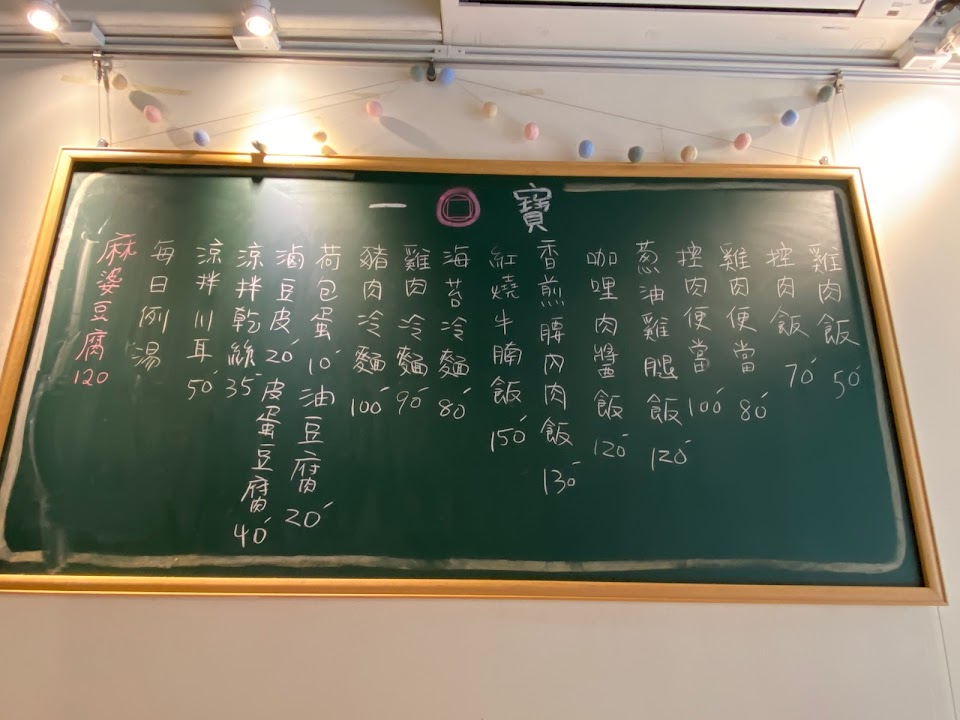 一 回 寶
雞肉飯 50
控肉飯 70
雞肉便當 80
控肉便當 100
葱油雞腿飯 120
咖哩肉醬飯 120
香煎腰內肉飯 130
紅燒牛腩飯 150
海苔冷麵 80
雞肉冷麵 90
豬肉冷麵 100
荷包蛋 10 油豆腐 20
滷豆皮 20 皮蛋豆腐 40
涼拌乾絲 35
涼拌川耳 50
每日例湯
麻婆豆腐 120